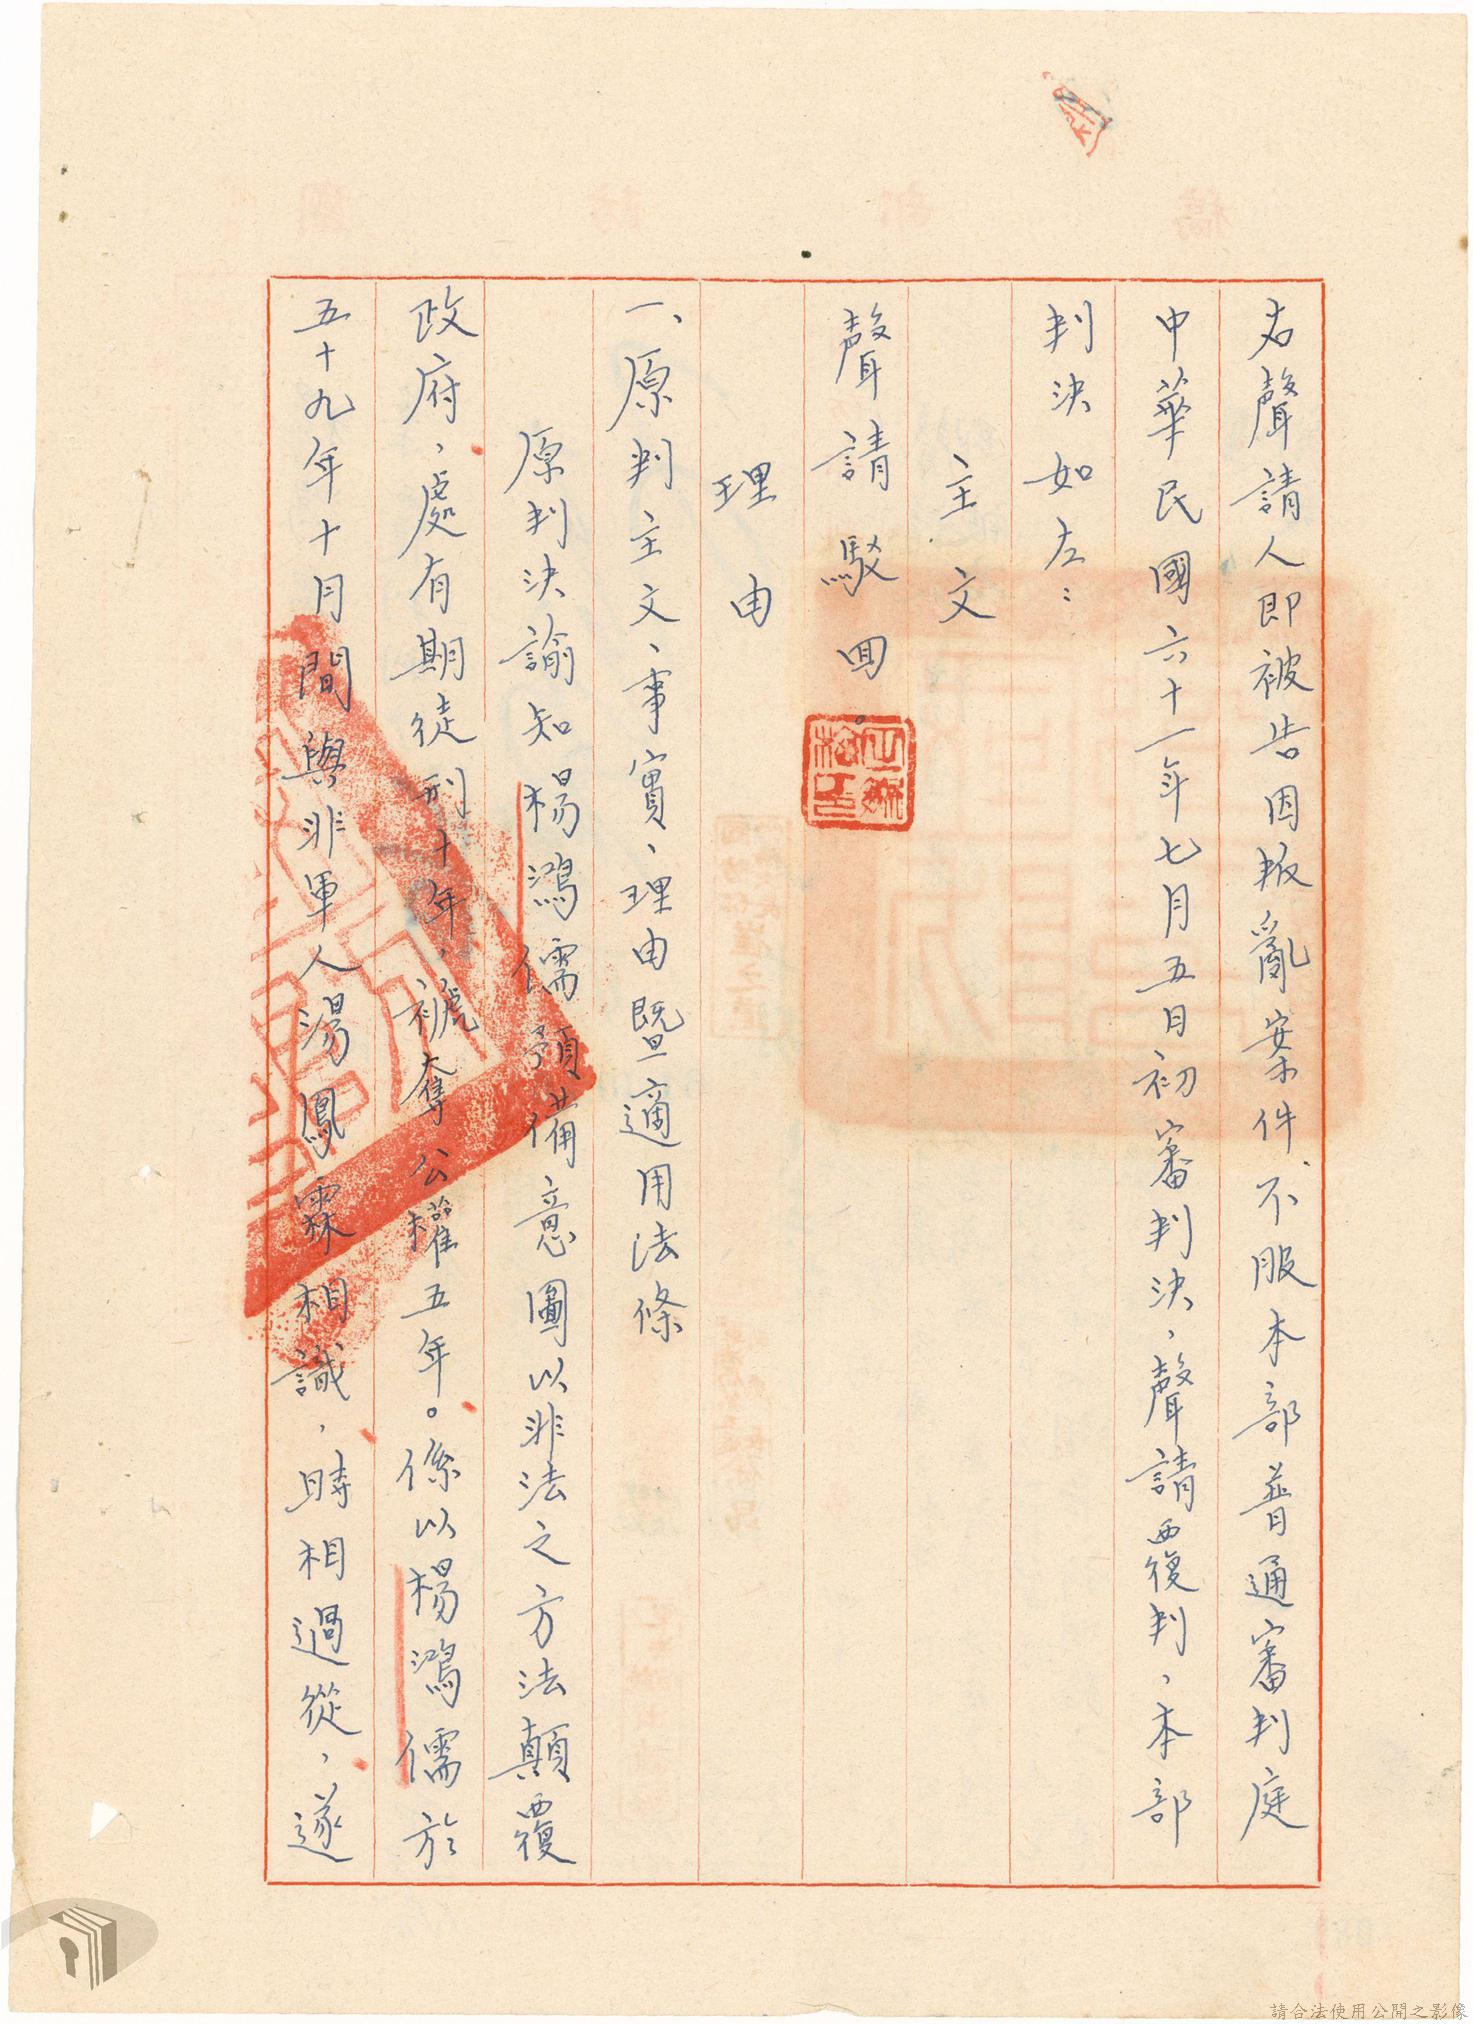 右聲請人即被告因叛亂案件、不服本部普通審判庭
中華民國六十一年七月五日初審判決，聲請覆判，本部
判決如左：
主文
聲請駁回。
理由
一、原判主文、事實、理由暨適用法條
原判決諭知楊鴻儒預備意圖以非法之方法顛覆
政府，處有期徒刑十年，褫奪公權五年。係以楊鴻儒於
五十九年十月間與非軍人湯鳳霖相識，時相過從，遂
請合法使用公開之影像